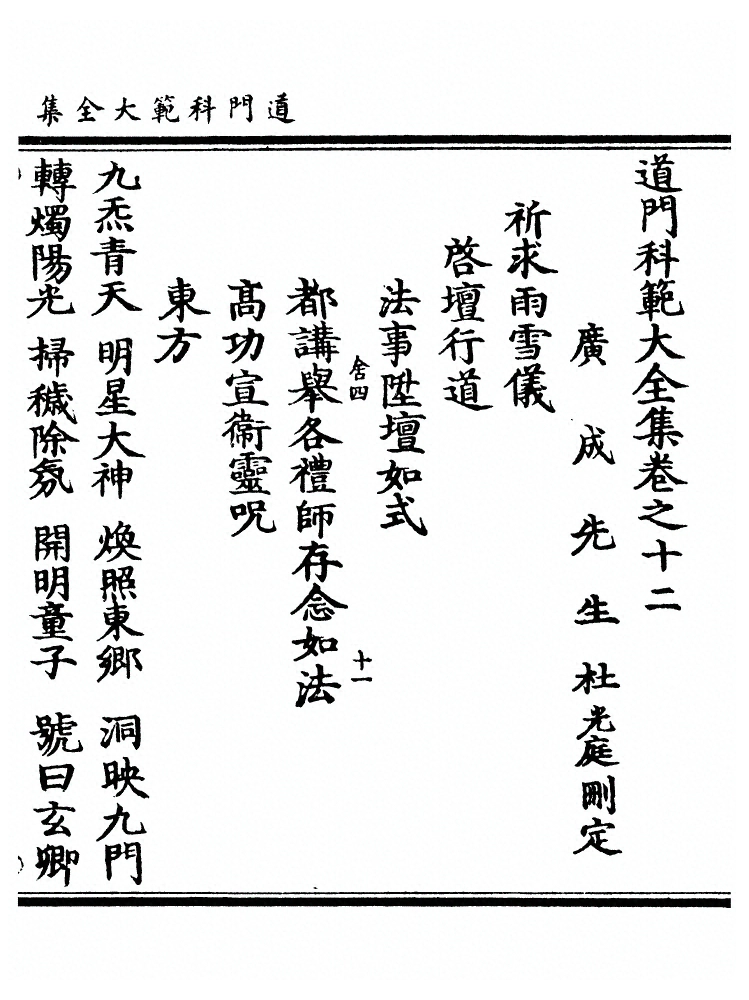 道門科範大全集
道門科範大全集卷之十二
廣成先生杜光庭刪定
祈求雨雪儀
啓壇行道
法事陞壇如式
舍四
十一
都講舉各禮師存念如法
高功宣衞靈呪
東方
九炁青天 明星大神 煥照東鄉 洞映九門
轉燭陽光 掃穢除氛 開明童子 號曰玄卿